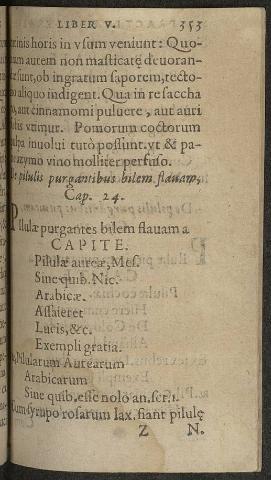 LIBER V. 353
rinis horis in vsum veniunt: Quo-
iam autem non masticatę deuoran-
sunt, ob ingratum saporem, tecto-
aliquo indigent. Qua in re saccha
aut cinnamomi puluere, aut auri
vtimur. Pomorum coctorum
pulpa inuolui tuto possunt. vt & pa-
azymo vino molliter perfuso.
De pilulis purgantibus bilem flauam,
Cap. 24.
Pilulæ purgantes bilem flauam a
CAPITE.
Pilulæ aureæ, Mes.
Sine quib. Nic.
Arabicæ.
Assaieret
Lucis, &c.
Exempli gratia.
Pilularum Aurearum
Arabicarum
Sine quib. esse nolo an. scr. 1.
Cum syrupo rosarum lax. fiant pilulę
Z N.